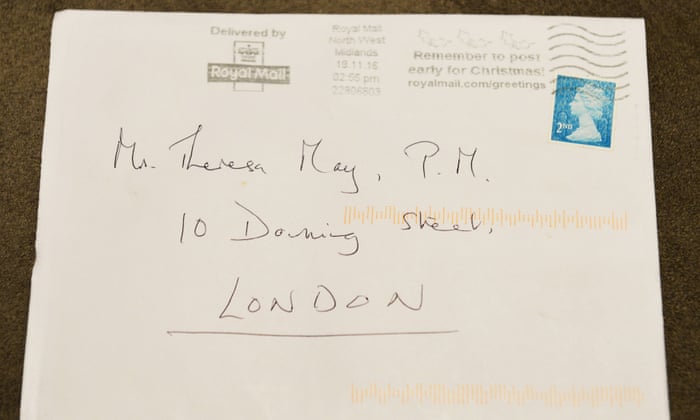 Delivered by
Royal Mail
Royal Mail
North West
Midlands
19.11.16
02:55 pm
22806803
Remember to post
early for Christmas!
royalmail.com/greetings
2ND
Mrs. Theresa May, P.M.
10 Downing Street,
LONDON